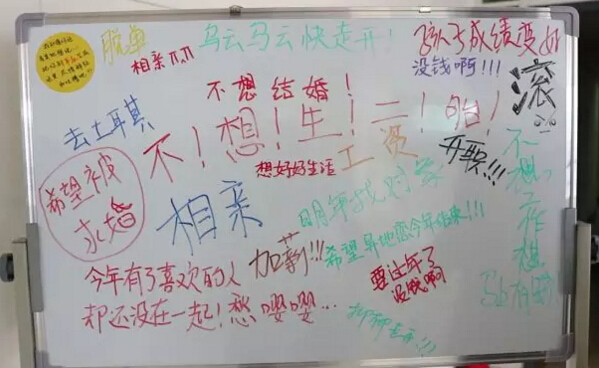 脱单
相亲
乌云乌云快走开!
孩子成绩变好
没钱啊!!!
滚
不想结婚!
去土耳其
不!想!生!二!胎!
想好好生活
工资
升职!!!
希望被
求婚
相亲
明年找对象
不想工作想
加薪!!!
希望异地恋今年结束!!!
今年有了喜欢的人
却还没在一起!愁嘤嘤...
要过年了
没钱啊